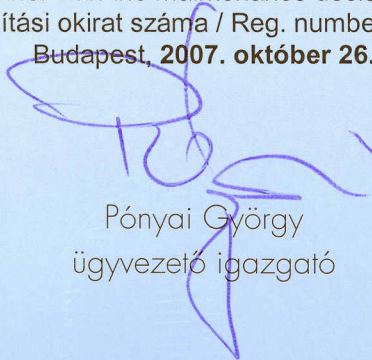 ítási okirat száma / Reg. numbe
Budapest, 2007. október 26.
Pónyai György
ügyvezető igazgató